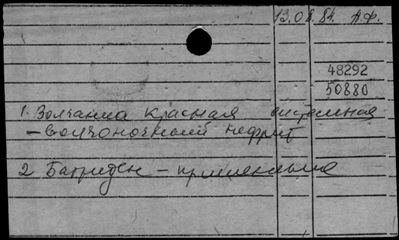 13.08.84. А.Ф.
48292
50880
1. Волчанка красная системная
– волчоночный нефрит
2. Батриден – применение